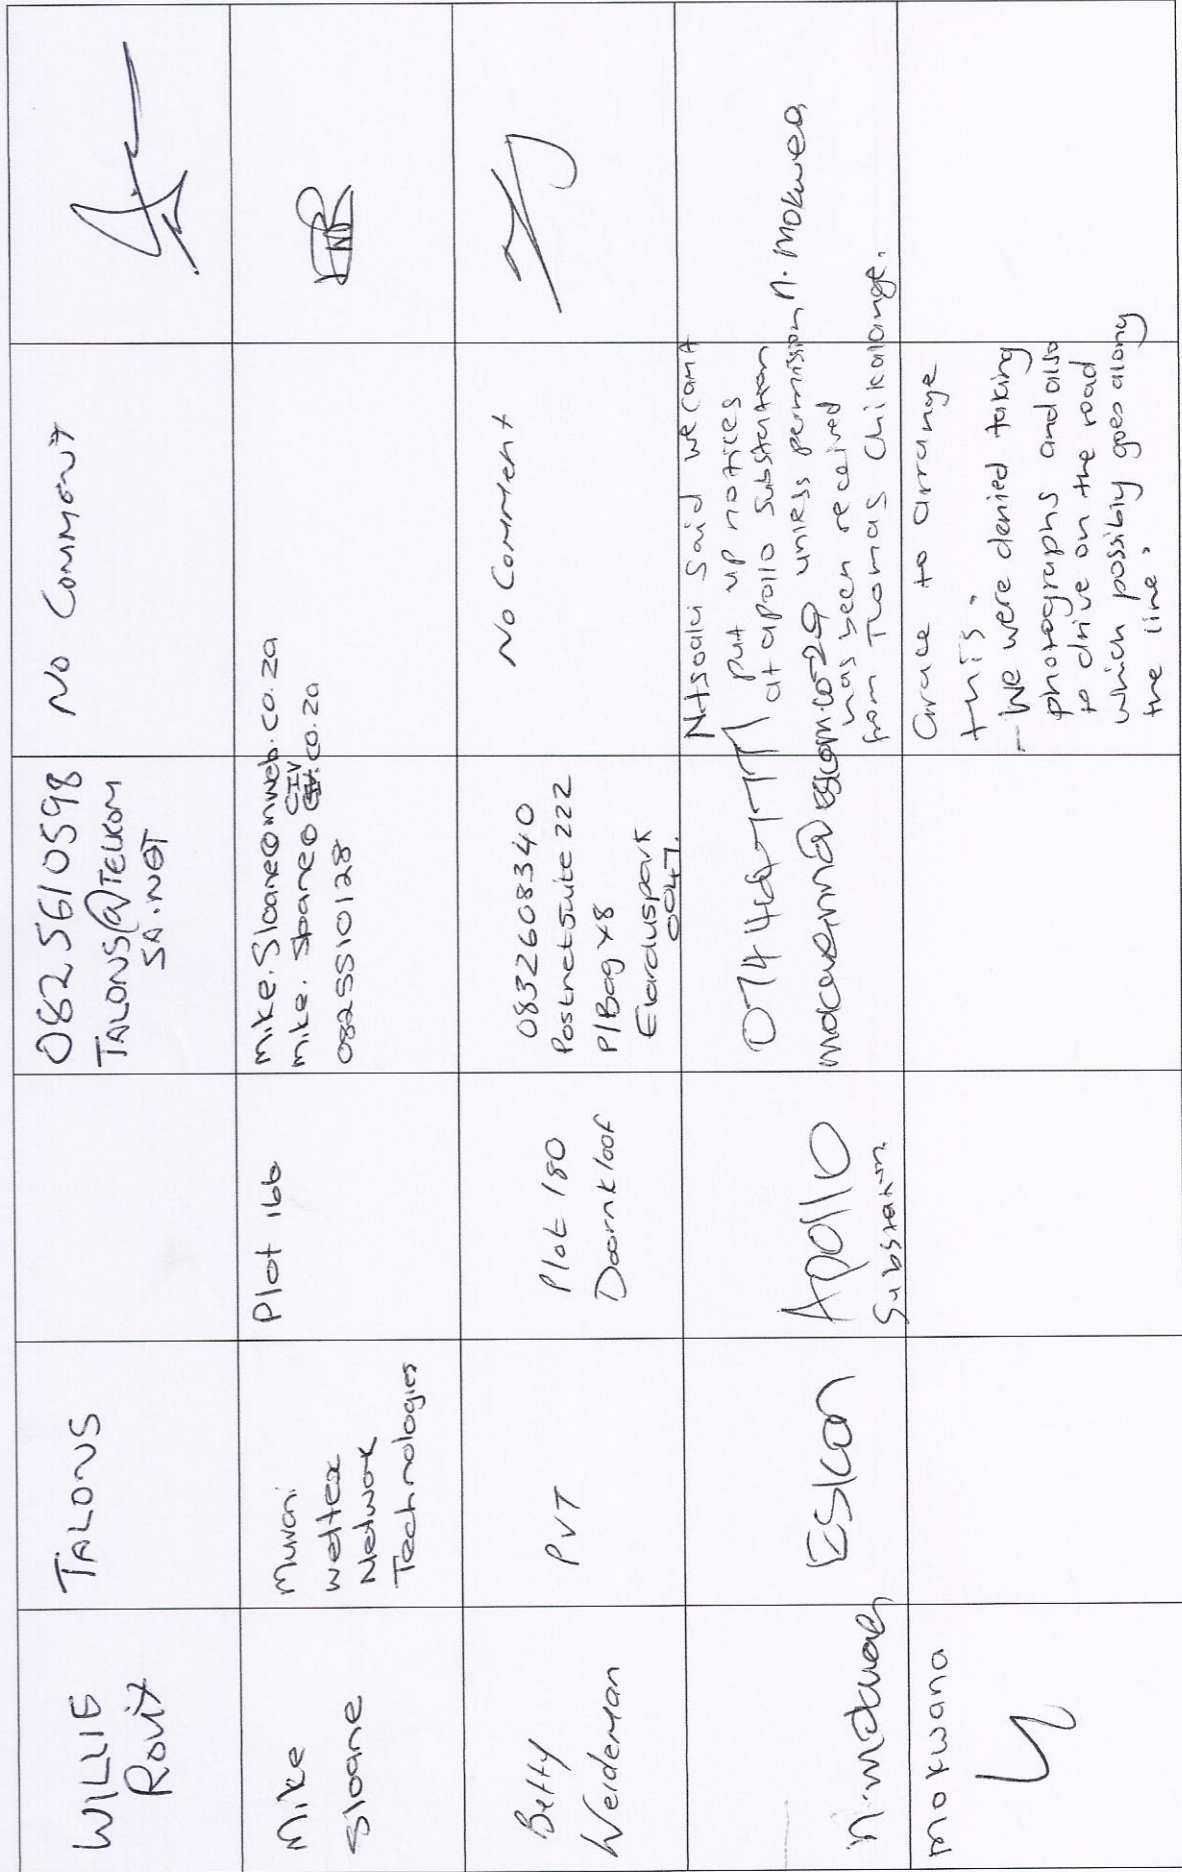 WILLIE
Rovix
TALONS
0825610598
TALONS@TELKOM
SA.NET
No Comment
Mike
Sloane
Muvoni
Weltex
Network
Technologies
Plot 166
Mike.Sloane@mweb.co.za
CIV
mike.sloane@ .co.za
0825510128
Betty
Weideman
PVT
Plot 180
Doornkloof
0832608340
Postnet Suite 222
P/Bag X8
Elarduspark
0047.
No Comment
Eskom
Apollo
Substation
Ntsoaki said we cant
put up notices
at apollo substation
unless permission
has been received
from Thomas Chikalange.
N. Mokwena
mokwana
Grace to arrange
this.
- We were denied taking
photographs and also
to drive on the road
which possibly goes along
the line.